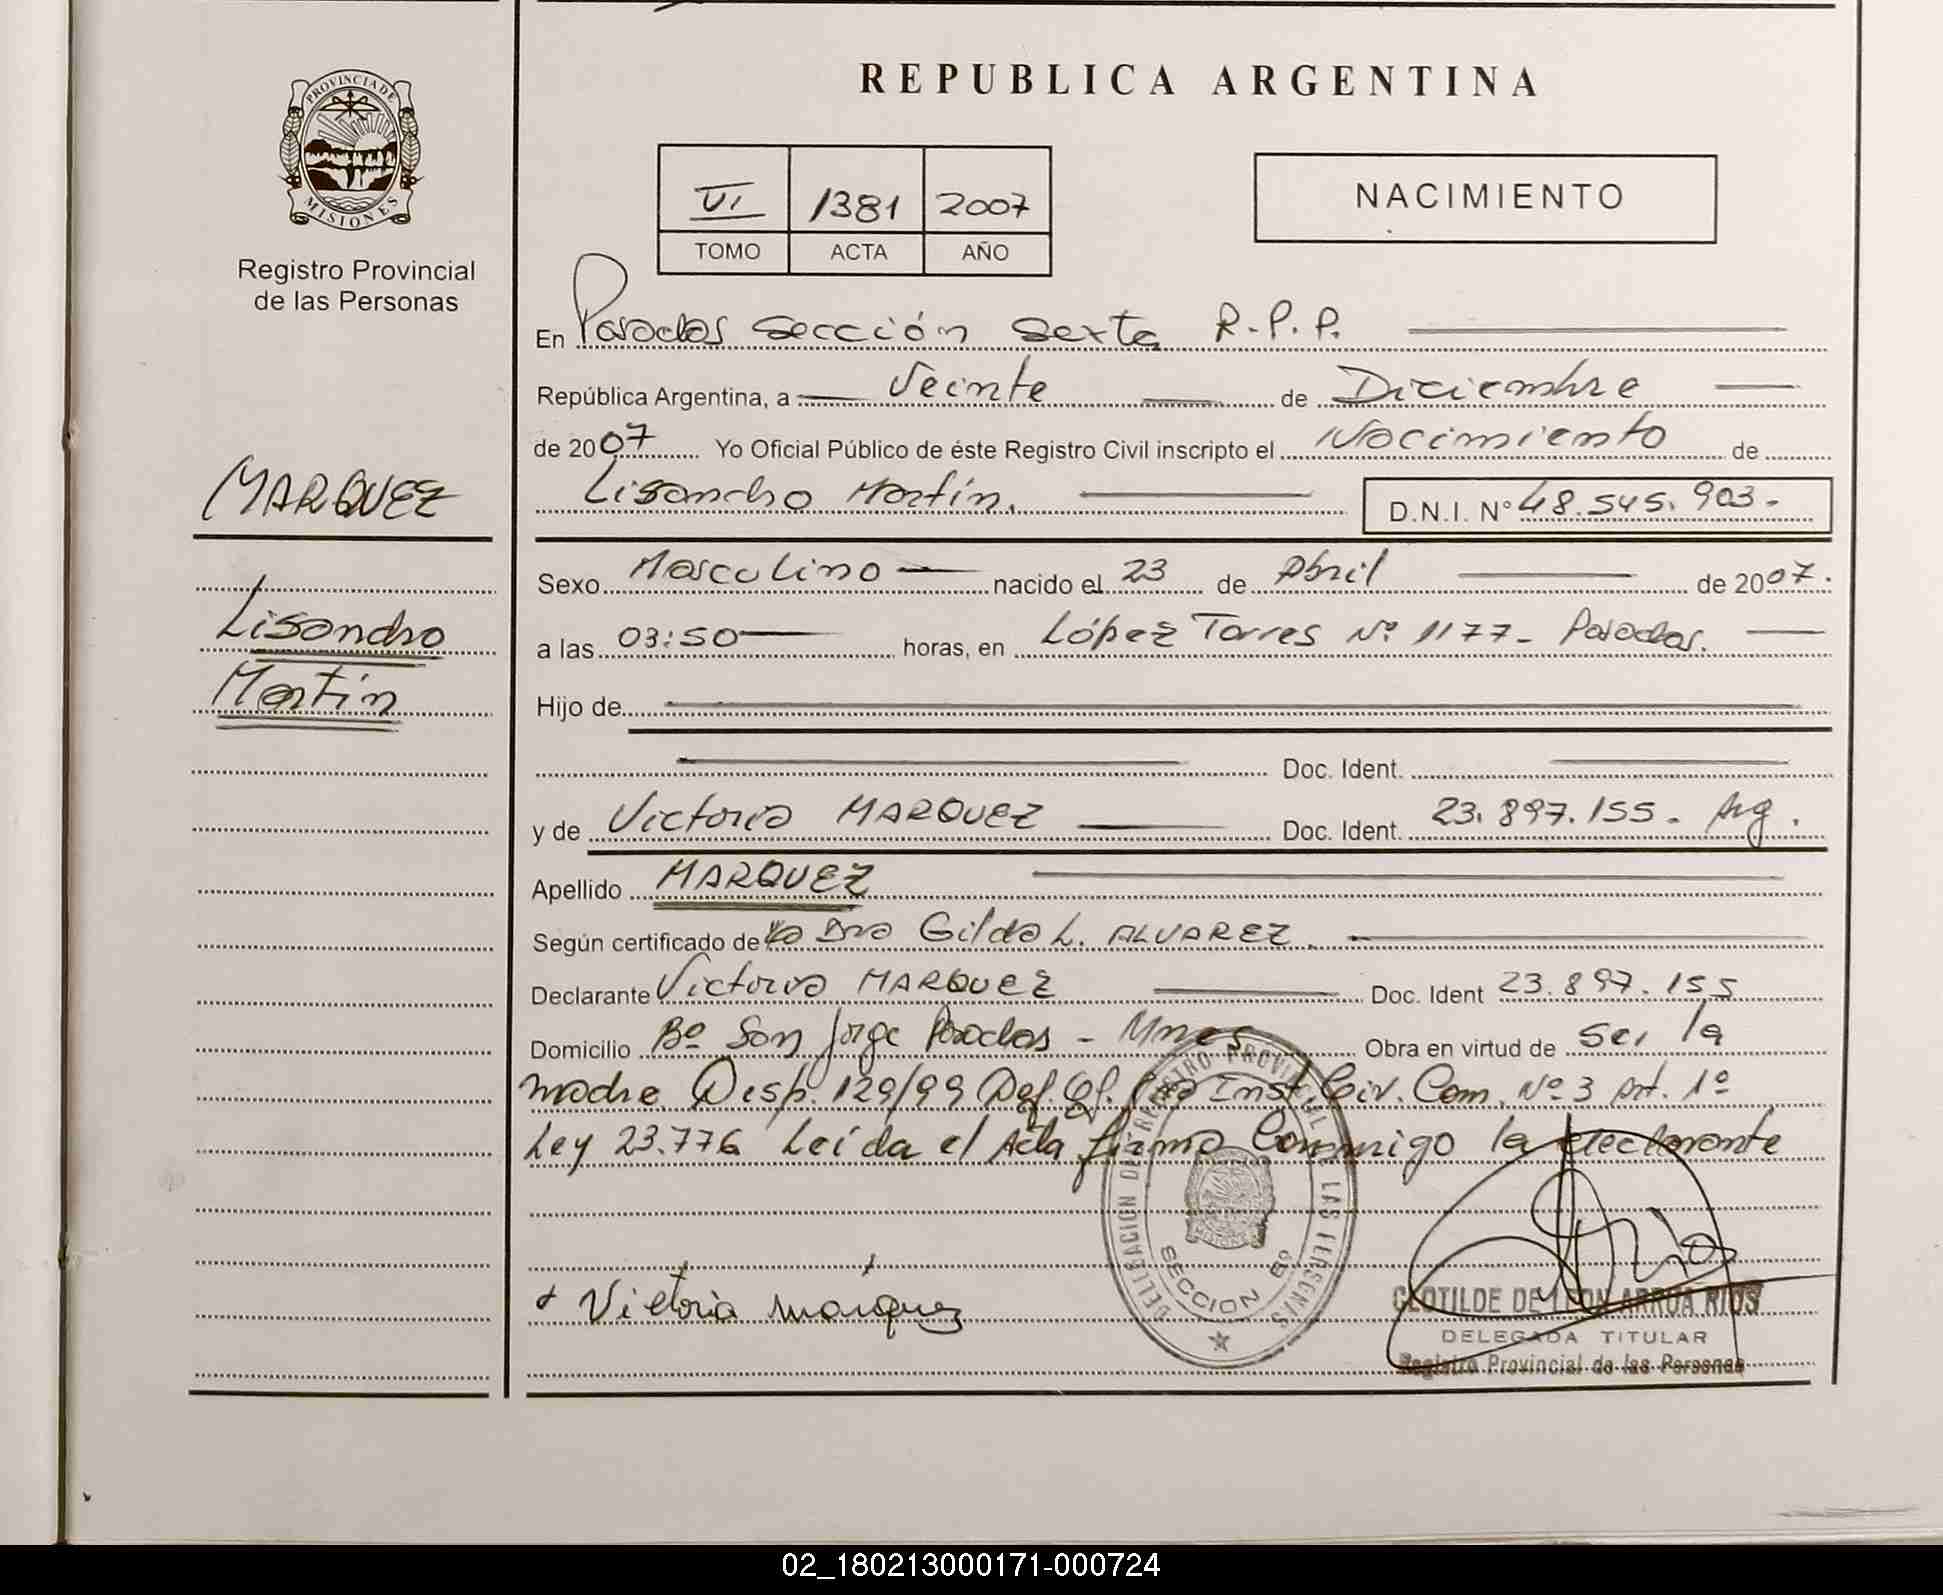 REPUBLICA ARGENTINA
PROVINCIA DE MISIONES
Registro Provincial
de las Personas
VI 1381 2007
TOMO ACTA AÑO
NACIMIENTO
En Posadas sección sexta R.P.P.
República Argentina, a Veinte de Diciembre
de 2007 Yo Oficial Público de éste Registro Civil inscripto el Nacimiento de
Lisandro Martín. D.N.I. Nº 48.545.903.-
MARQUEZ
Lisandro
Martín
Sexo Masculino nacido el 23 de Abril de 2007.
a las 03:50 horas, en López Torres Nº 1177- Posadas.
Hijo de
Doc. Ident.
y de Victoria MARQUEZ Doc. Ident. 23.897.155- Arg.
Apellido MARQUEZ
Según certificado de la Dra Gilda L. ALVAREZ.
Declarante Victoria MARQUEZ Doc. Ident 23.897.155
Domicilio Bº San Jorge Posadas - Mnes Obra en virtud de ser la
madre Disp. 129/99 Def. Of. Inst. Civ. Com. Nº 3 Art. 1º
Ley 23.776 Leída el Acta firma Conmigo la declarante
+ Victoria marquez
DELEGACION DE REGISTRO PROVINCIAL DE LAS PERSONAS
SECCION 6º
CLOTILDE DE LEON ARRUA RIOS
DELEGADA TITULAR
Registro Provincial de las Personas
02_180213000171-000724